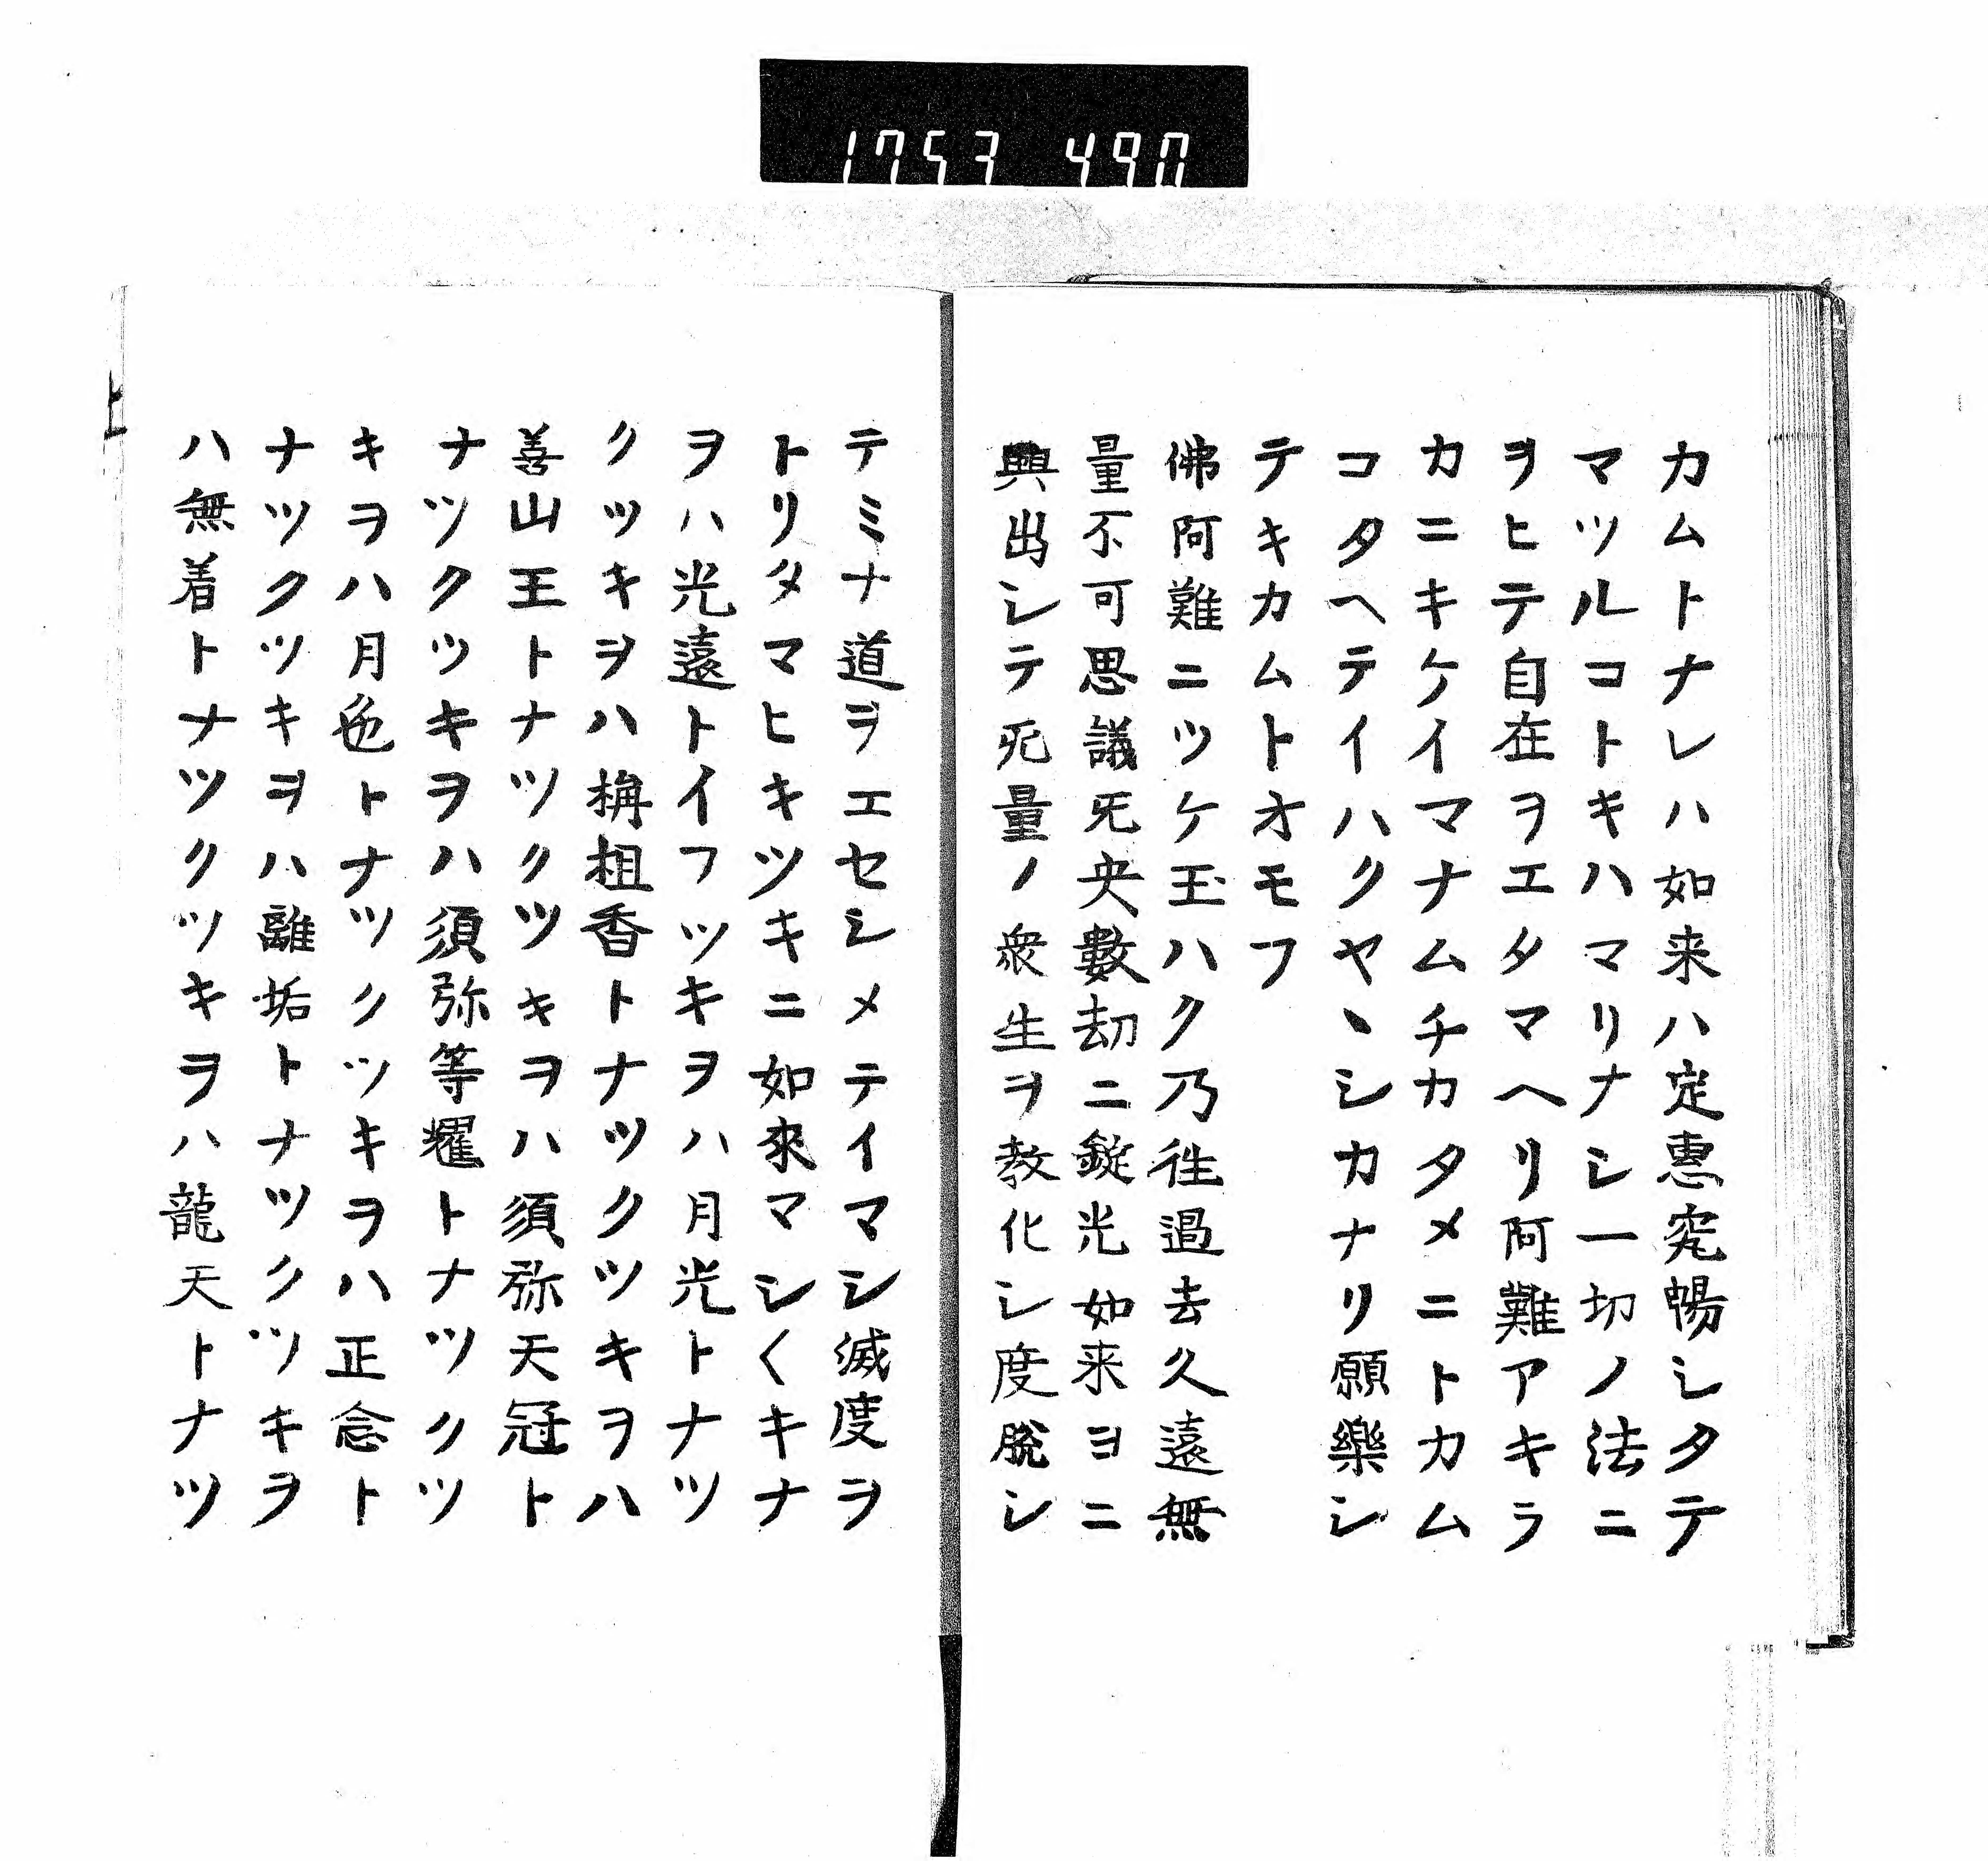 1753 490
カムトナレハ如来ハ定恵究暢シタテ
マツルコトキハマリナシ一切ノ法ニ
ヲヒテ自在ヲエタマヘリ阿難アキラ
カニキケイマナムチカタメニトカム
コタヘテイハクヤヽシカナリ願樂シ
テキカムトオモフ
佛阿難ニツケ玉ハク乃徃過去久遠無
量不可思議旡央數劫ニ錠光如来ヨニ
興出シテ旡量ノ衆生ヲ教化シ度脱シ
テミナ道ヲエセシメテイマシ滅度ヲ
トリタマヒキツキニ如來マシ〱キナ
ヲハ光遠トイフツキヲハ月光トナツ
クツキヲハ栴檀香トナツクツキヲハ
善山王トナツクツキヲハ須弥天冠ト
ナツクツキヲハ須弥等耀トナツクツ
キヲハ月色トナツクツキヲハ正念ト
ナツクツキヲハ離垢トナツクツキヲ
ハ無着トナツクツキヲハ龍天トナツ
上